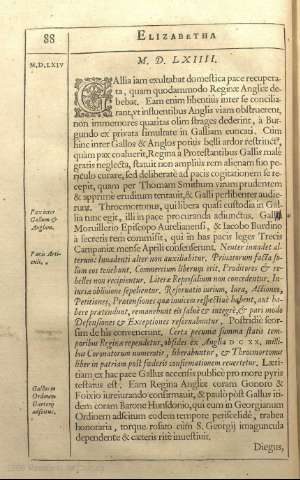 88
ELIZABETHA
M,D,LXIV
M. D. LXIIII.
GAllia iam exultabat domestica pace recupera-
ta, quam quodammodo Reginæ Angliæ de-
bebat. Eam enim libentius inter se concilia-
rant, vt influentibus Anglis viam obstruerent,
non immemores quantas olim strages dederint, à Bur-
gundo ex privata simultate in Galliam euocati. Cùm
hinc inter Gallos & Anglos potiùs belli ardor restinctus,
quàm pax coaluerit, Regina à Protestantibus Gallis malè
gratis neglecta, statuit rem amplius rem alienam suo pe-
riculo curare, sed deliberatè ad pacis cogitationem se re-
cepit, quam per Thomam Smithum virum prudentem
& apprimè eruditum tentauit, & Galli perlibenter audie-
runt. Throcmortonus, qui libera quasi custodia in Gal-
lia tunc egit, illi in pace procuranda adiunctus, Galli
Moruillerio Episcopo Aurelianensi, & Iacobo Burdino
à secretis rem commisit, qui in has pacis leges Trecis
Campaniæ mense Aprili consenserunt.
Pax inter
Gallum &
Anglum.
Pacis Arti-
culi.
Neuter inuadet al-
terum: Inuadenti alter non auxiliabitur. Priuatorum facta so-
lùm eos tenebunt. Commercium liberum erit. Proditores & re-
belles non recipientur. Literæ Represalium non concedentur. In-
iuriæ obliuione sepelientur. Reginatus iurium, Iura, Actiones,
Petitiones, Prætensiones quas inuicem respectiuè habent, aut ha-
bere prætendunt, remanebunt eis saluæ & integræ, & pari modo
Defensiones & Exceptiones reseruabuntur. Postridiè seor-
sim de his conuenerunt, Certa pecuniæ summa statis tem-
poribus Reginæ rependetur, obsides ex Anglia D C XX, milli-
bus Coronatorum numeratis, liberabuntur, & Throcmortonus
liber in patriam post fœderis confirmationem reuertetur. Læti-
tiam ex hac pace Gallus accensis publicè pro more pyris
testatus est. Eam Regina Angliæ coram Gonoro &
Foixio iureiurando confirmauit, & paulò pòst Gallus iti-
dem coram Barone Hunsdonio, qui eum in Georgianum
Ordinem adscitum eodem tempore periscelide, trabea
honoraria, torque rosato cum S. Georgij imaguncula
dependente & cæteris ritè inuestiuit.
Gallus in
Ordinem
Garterij
adscitus.
Diegus,